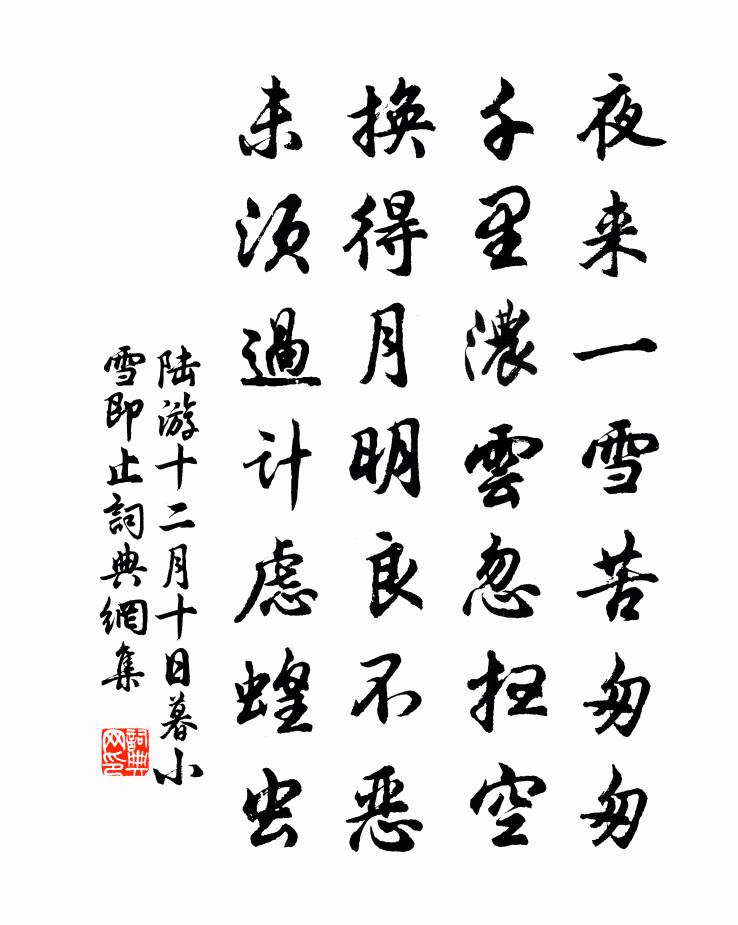 夜来一雪苦匆匆
千里濃雲忽扫空
換得月明良不恶
未须過计虑蝗虫
陆游十二月十日暮小
雪即止詞典網集
詞典
网印